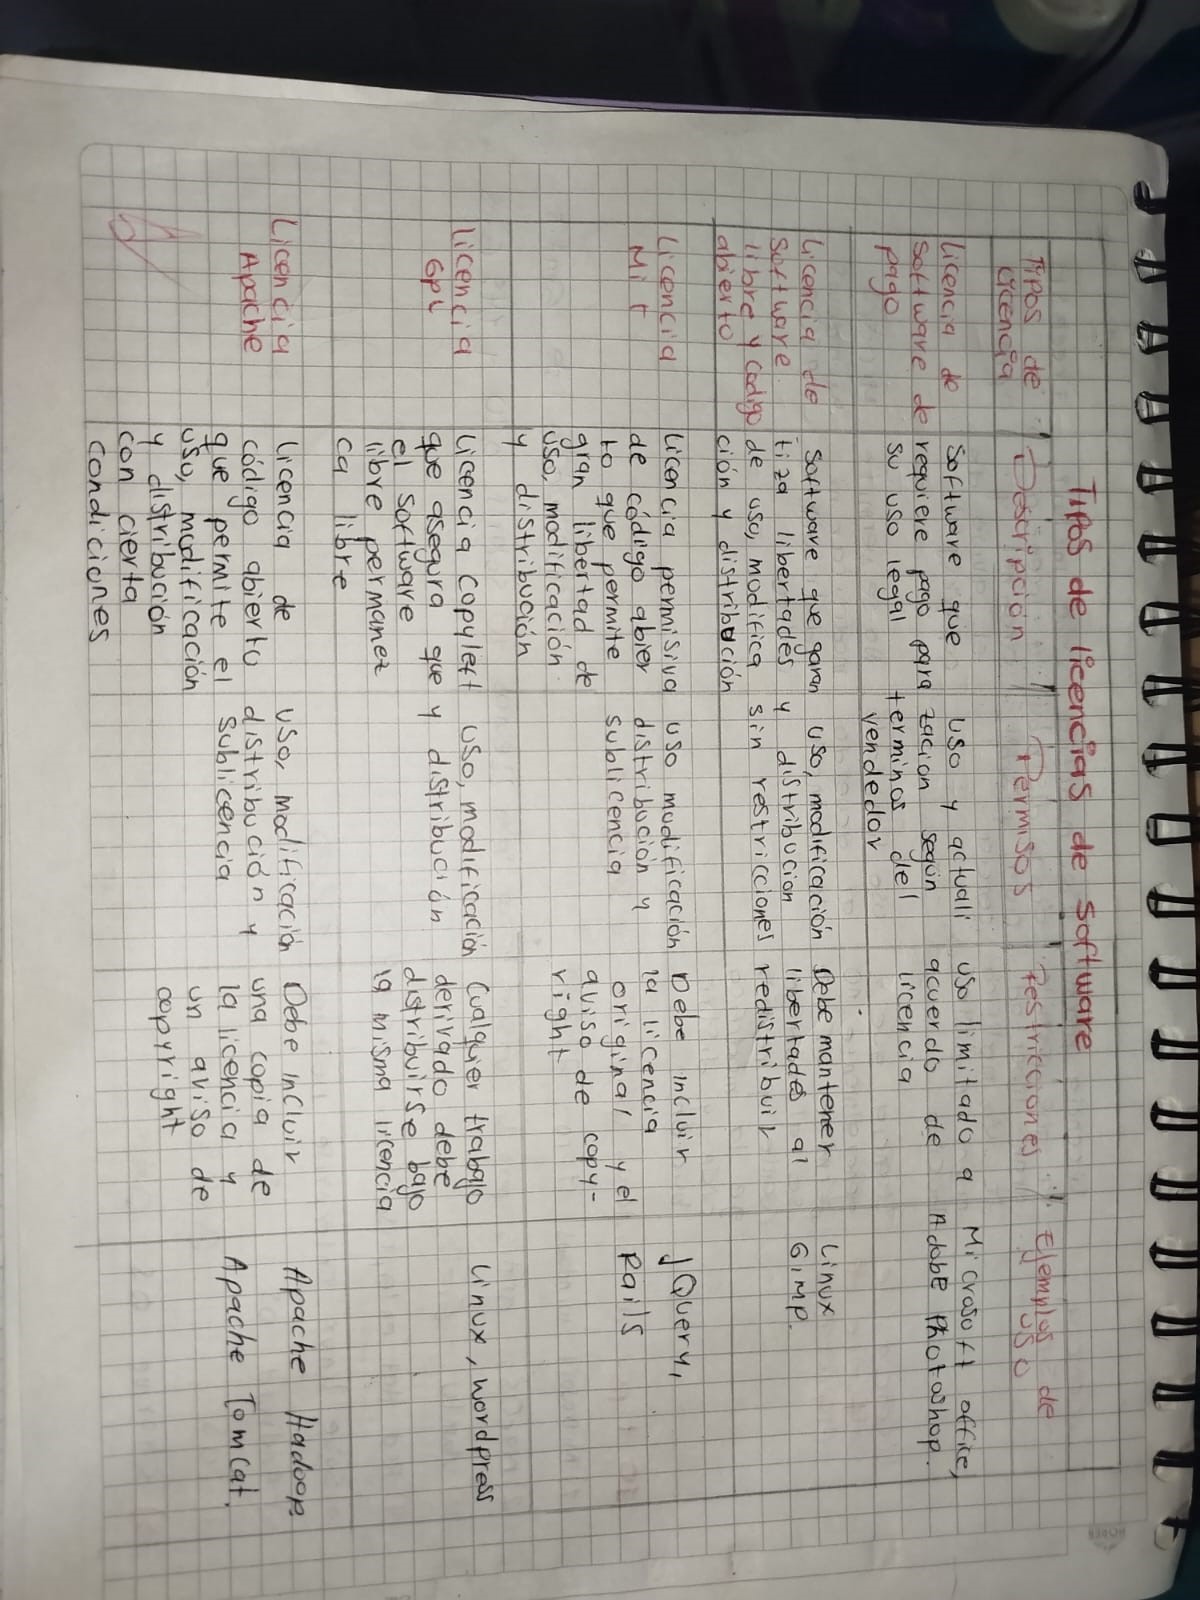 Tipos de licencias de software
Tipos de
licencia
Descripción
Permisos
Restricciones
Ejemplos de
uso
Licencia de
software de
pago
Software que
requiere pago para
su uso legal
Uso y actuali
zacion según
terminos del
vendedor
uso limitado a
acuerdo de
licencia
Microsoft office,
Adobe Photoshop.
Licencia de
software
libre y codigo
abierto
Software que garan
tiza libertades
de uso, modifica
ción y distribución
uso, modificación
y distribucion
sin restricciones
Debe mantener
libertades al
redistribuir
Linux
GIMP.
Licencia
Mit
Licencia permisiva
de código abier
to que permite
gran libertad de
uso, modificación.
y distribución
uso modificación
distribución y
sublicencia
Debe incluir
la licencia
original y el
aviso de copy-
right
jQuery,
Rails
Licencia
GPL
Licencia copyleft
que asegura que
el software
libre permanez
ca libre
uso, modificación
y distribución
Cualquier trabajo
derivado debe
distribuirse bajo
la misma licencia
Linux, wordpress
Licencia
Apache
Licencia de
código abierto
que permite el
uso, modificación
y distribución
con cierta
condiciones
uso, modificación
distribución y
sublicencia
Debe incluir
una copia de
la licencia y
un aviso de
copyright
Apache Hadoop
Apache Tomcat.